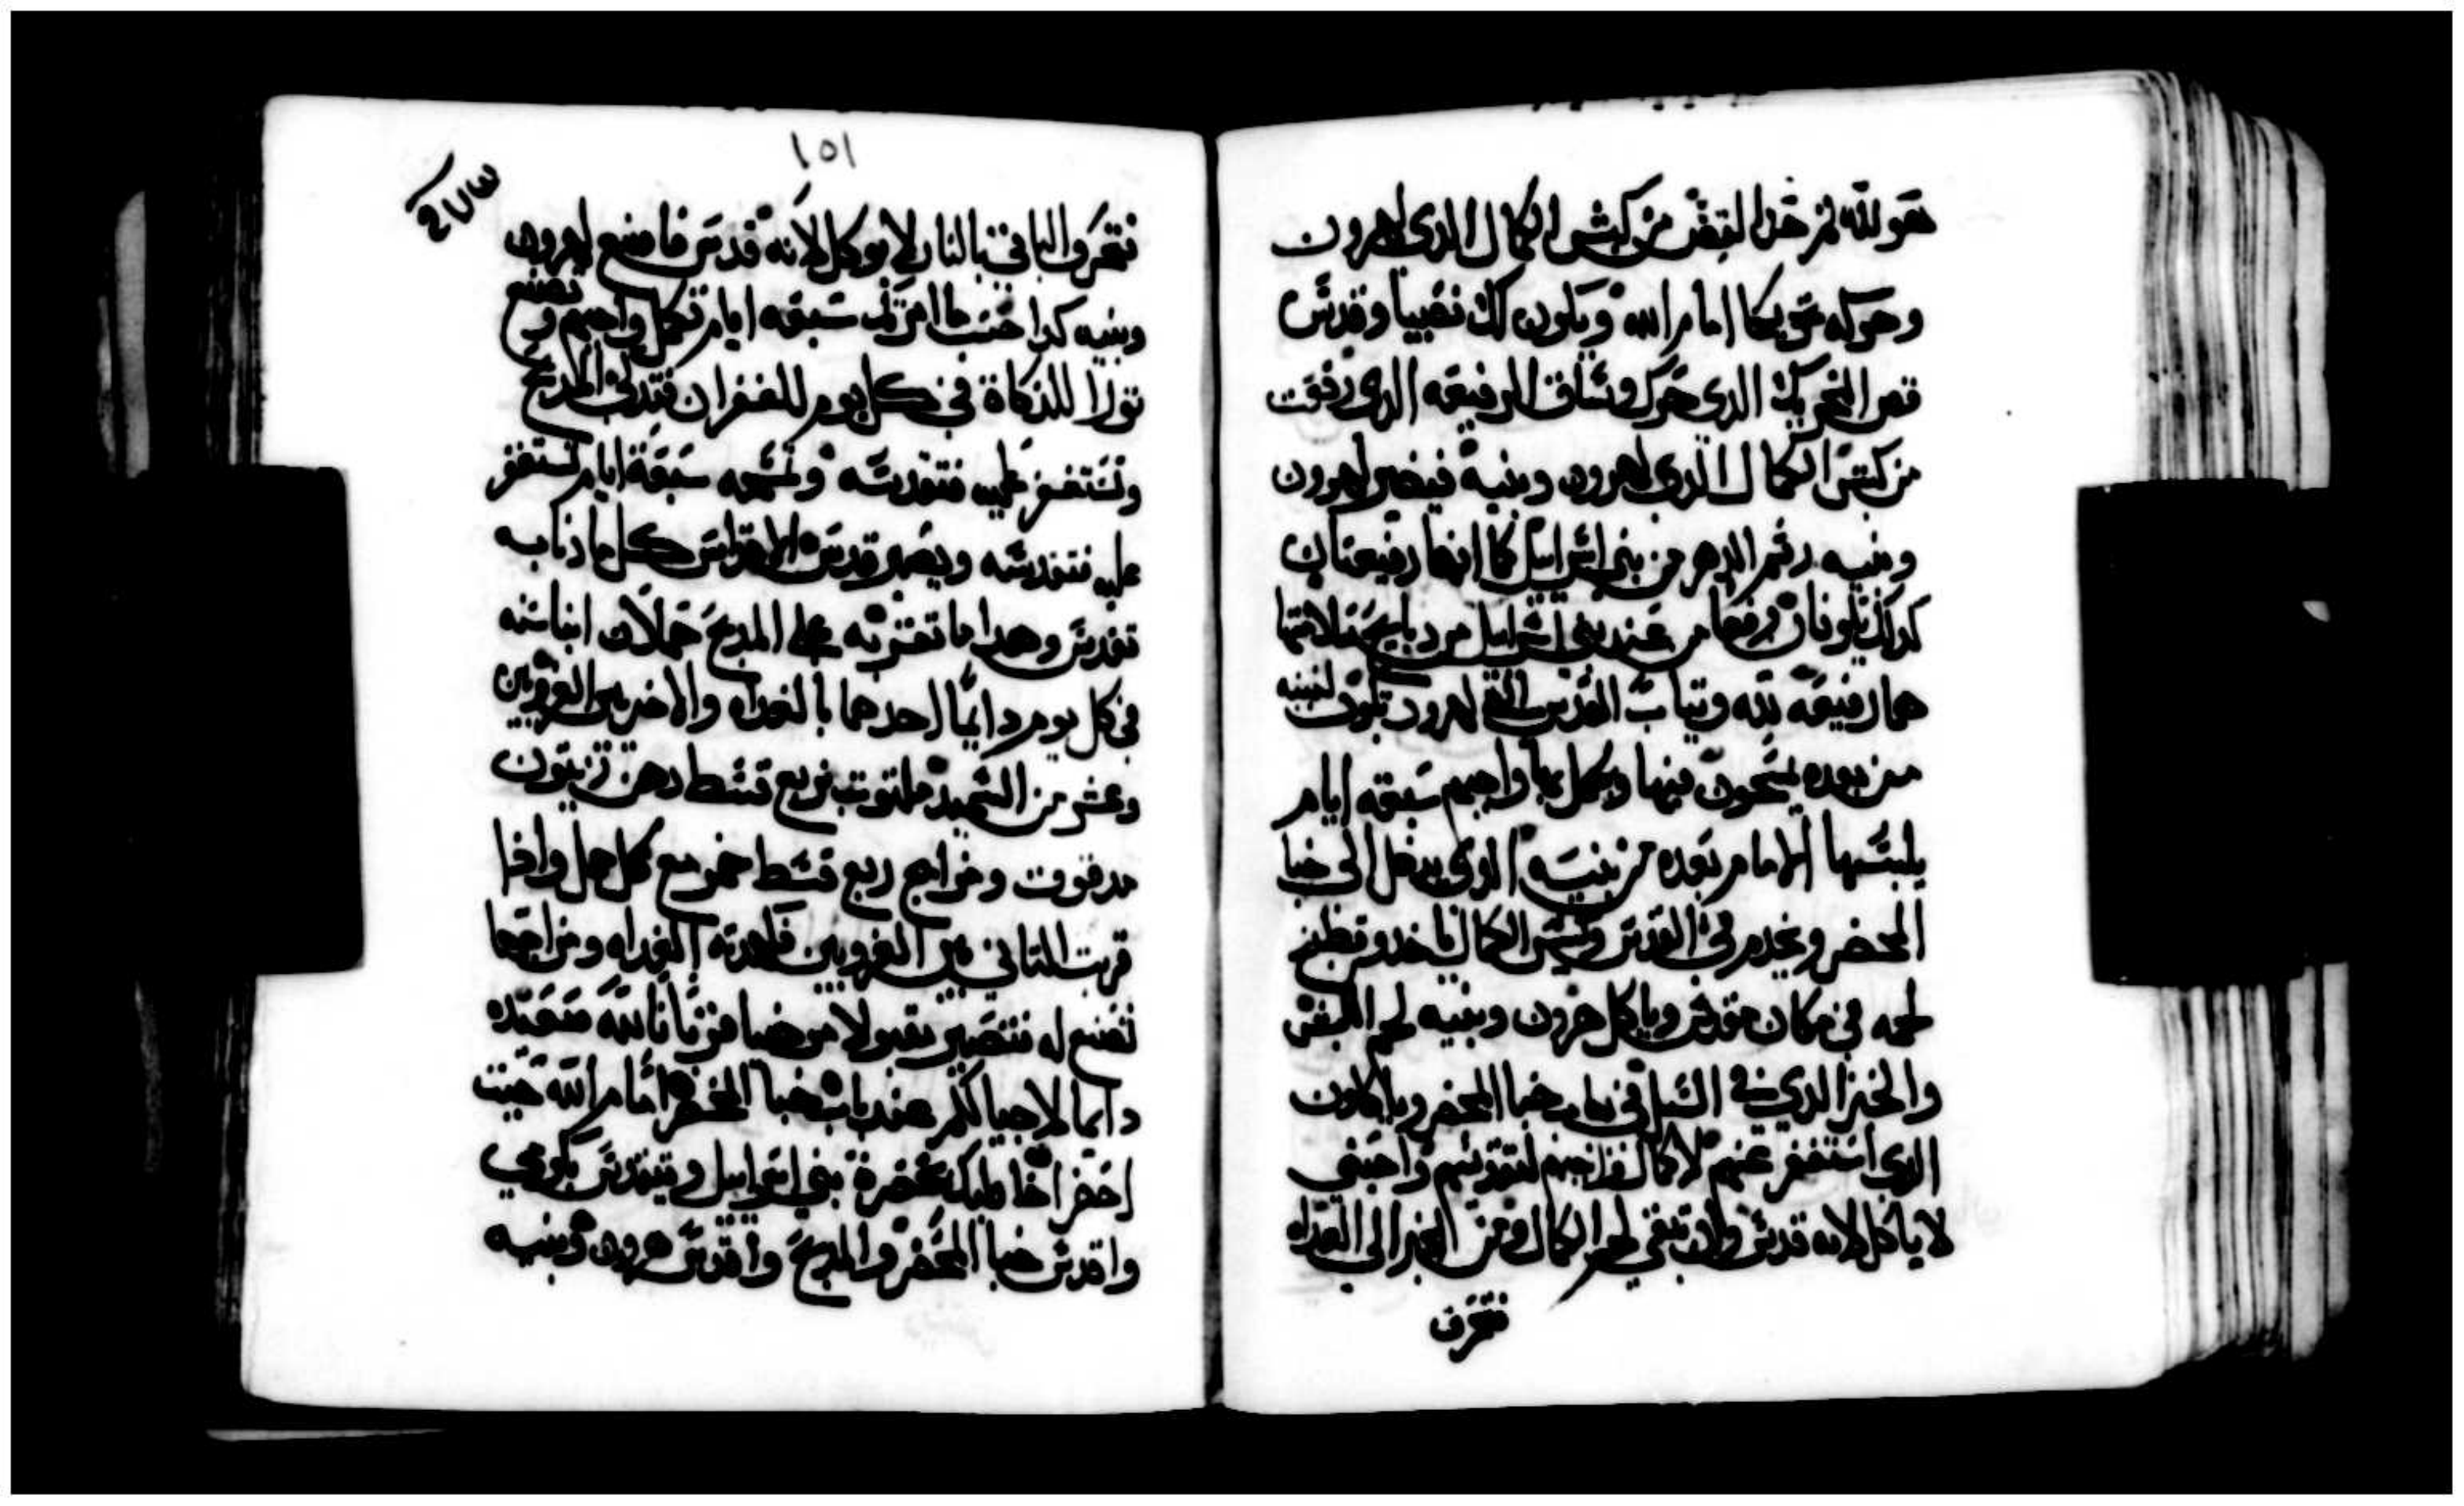 هو لله ثم خذ القص من كبش الكمال الذي لهرون
وحركه تحريكا امام الله ويكون لك نصيبا وقدس
قص التحريك الذي حرك وساق الرفيعه الذي رفعت
من كبش الكمال الذي لهرون وبنيه فيصير لهرون
وبنيه رسم الدهر من بني اسراييل كما انها رفيعتان
كذلك تكونان رفعها من عند بني اسراييل من دبايح سلامتها
هما رفيعه لله وتياب القدس التي لهرون تكون لبنيه
من بعده يمسحون فيها ويكمل بها واجبهم سبعه ايام
يلبسها الامام بعده من بنيه الذي يدخل الى خبا
المحضر ويخدم في القدس وكبش الكمال ياخد وتطبخ
لحمه في مكان مقدس وياكل هرون وبنيه لحم الكبش
والخبز الذي في السل في باب خبا المحضر وياكلون
الذي استغفر عنهم لاكمال واجبهم لتقدسهم واجنبي
لا ياكل لانه قدس وان تبقى لحم الكمال ومن الخبز الى الغداه
فتحرق
١٥١
٢٧٣
فتحرق الباقي بالنار لا يوكل لانه قدس فاصنع لهرون
وبنيه كدا حسب ما امرتك سبعه ايام تكمل واجبهم وتصنع
تورا للذكاة في كل يوم للغفران فتدكي المدبح
وتستغفر عليه فتقدسه وتمسحه سبعة ايام تستغفر
عليه فتقدسه ويصير قدس الاقداس كل ما دنا به
تقدس وهدا ما تقربه على المدبح حملان ابنا سنه
في كل يوم دايما احدهما بالغداه والاخر بين الغروبين
وعشر من السميد ملتوت بربع قسط دهن زيتون
مدقوق ومزاج ربع قسط خمر مع كل حمل وادا
قربت التاني بين الغروبين فكهديه الغداه ومزاجها
تصنع له فتصير مقبولا مرضيا قربانا لله صعيده
دايما لاجيالكم عند باب خبا المحضر امام الله حيت
احضر اخاطبك بحضرة بني اسراييل ويتقدس بكرمي
واقدس خبا المحضر والمدبح واقدس هرون وبنيه